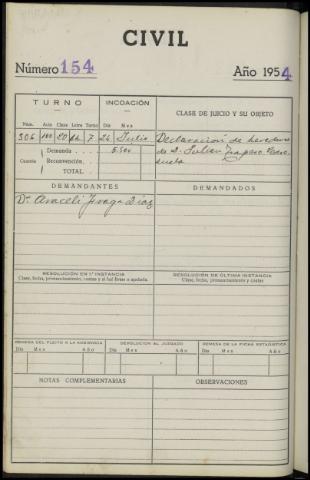 CIVIL
Número 154 Año 1954
TURNO INCOACIÓN CLASE DE JUICIO Y SU OBJETO
Núm. Auto Clase Letra Turno Día Mes
306 20 7 24 Julio Declaración de herederos
Demanda 5.500 de D. Julian
Cuantía Reconvención
TOTAL
DEMANDANTES DEMANDADOS
Dª Araceli Diaz
RESOLUCIÓN EN 1ª INSTANCIA RESOLUCIÓN DE ÚLTIMA INSTANCIA
Clase, fecha, pronunciamiento, costas y si fué firme o apelada. Clase, fecha, pronunciamiento y costas
REMESA DEL PLEITO A LA AUDIENCIA DEVOLUCIÓN AL JUZGADO REMESA DE LA FICHA ESTADÍSTICA
Día Mes Año Día Mes Año Día Mes Año
NOTAS COMPLEMENTARIAS OBSERVACIONES